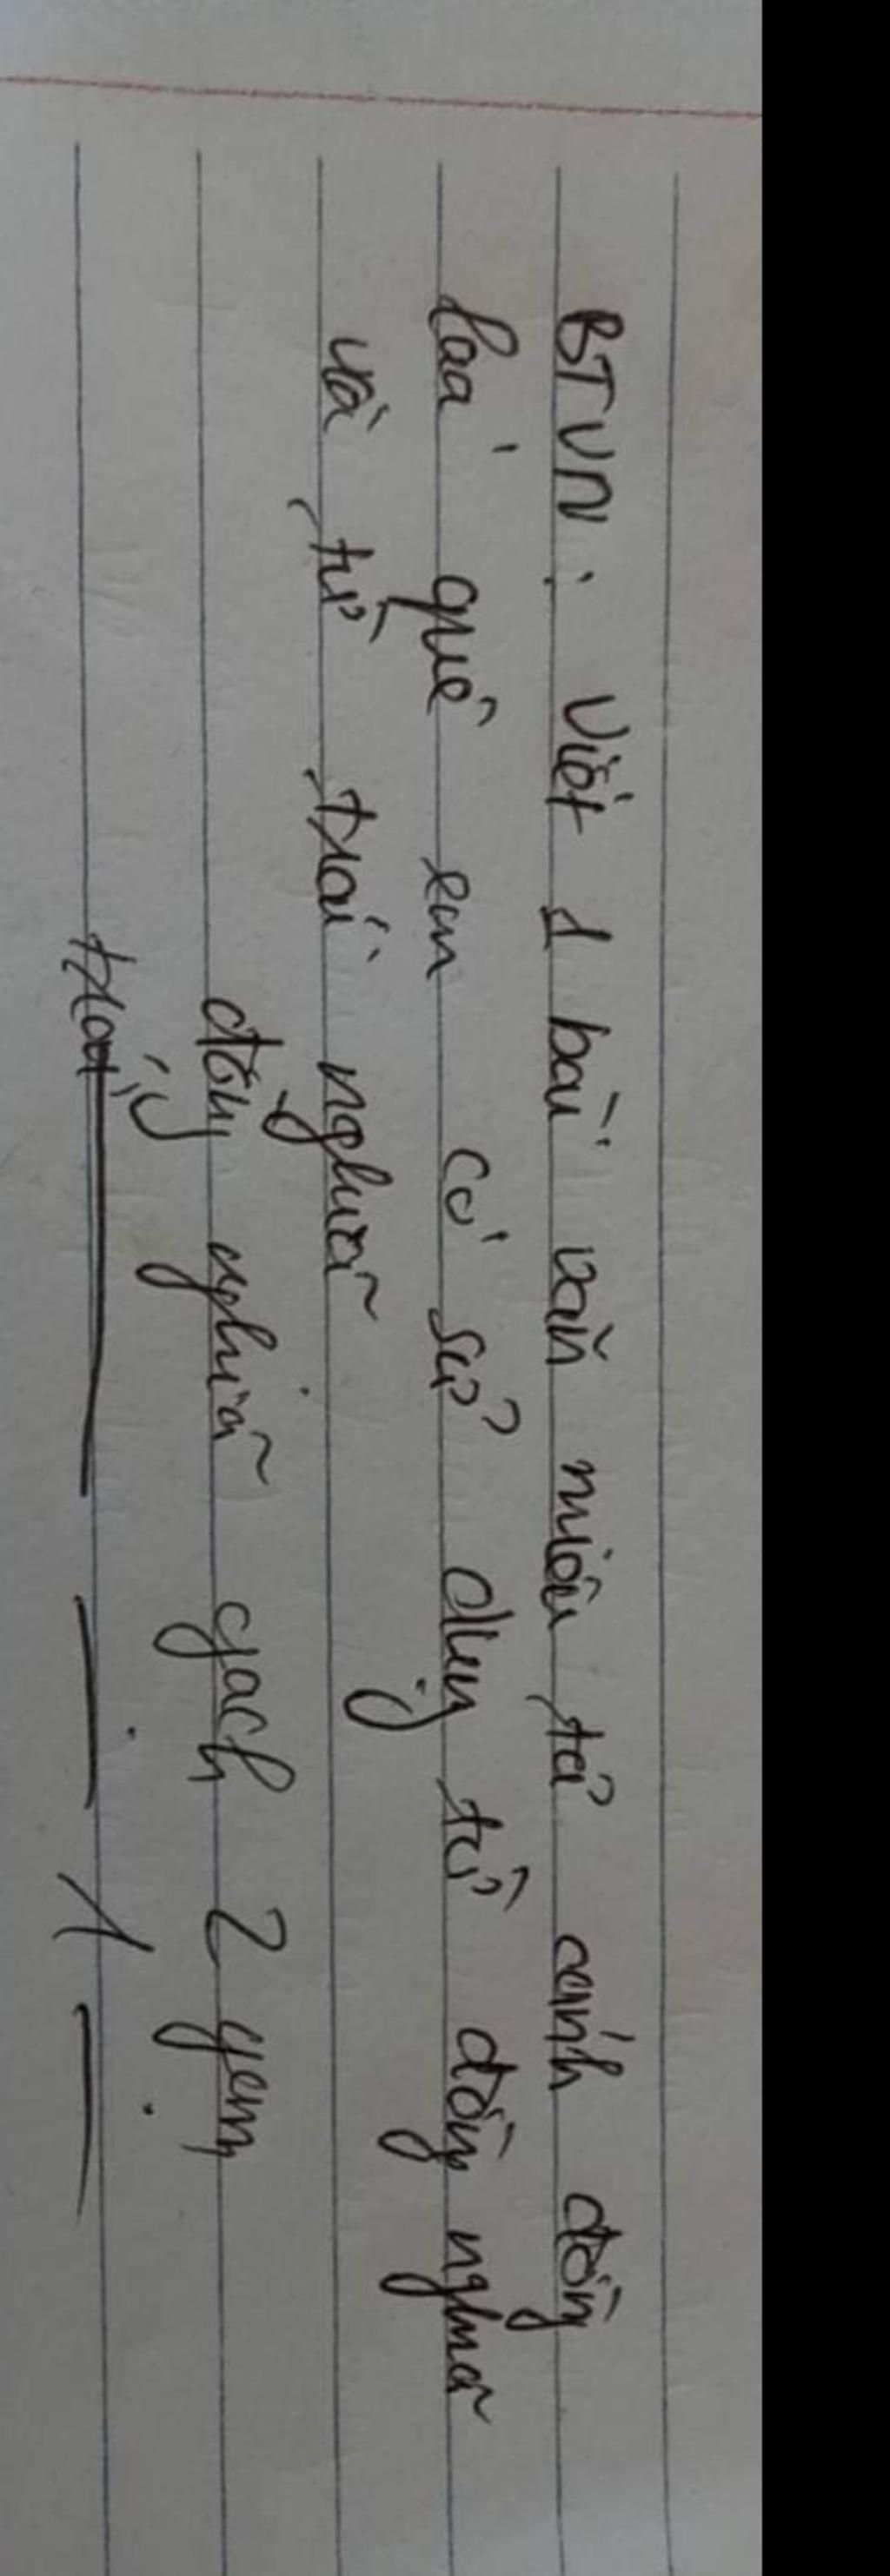 BTVN: Viết 1 bài văn miêu tả cánh đồng
lúa quê em có sử dụng từ đồng nghĩa
và từ trái nghĩa
đồng nghĩa gạch 2 gạch
trái